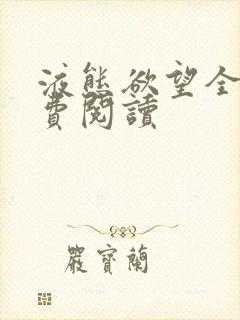 液態欲望全
費閱讀
嚴寶蘭